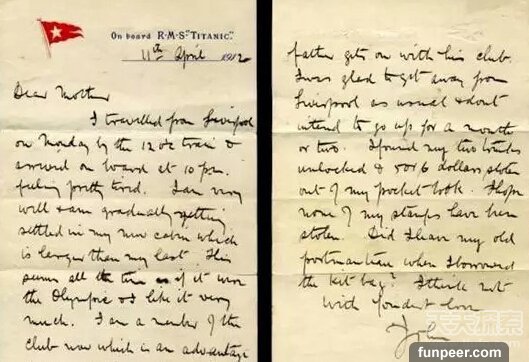 On board R·M·S "TITANIC".
11th April 1912
Dear Mother
I travelled from Liverpool
on Monday by the 12 oc train &
arrived on board at 10 pm.
feeling pretty tired. I am very
well & am gradually getting
settled in my new cabin which
is larger than my last. This
seems all the time as if it were
the Olympic & I like it very
much. I am a member of the
club now which is an advantage
father gets on with his club.
I was glad to get away from
Liverpool as usual & dont
intend to go up for a month
or two. I found my two trunks
unlocked & 5 or 6 dollars stolen
out of my pocket book. I hope
none of my stamps have been
stolen. Did I leave my old
portmanteau when I borrowed
the kit bag? I think not
With fondest love
John
天天探索
funpeer.com